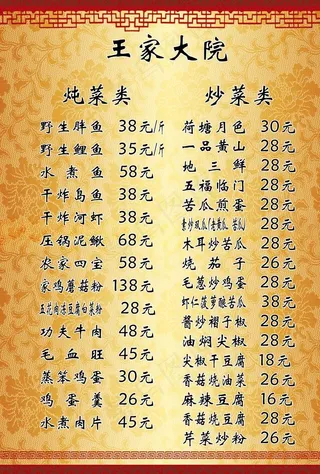 王家大院
炖菜类
野生胖鱼 38元/斤
野生鲤鱼 35元/斤
水煮鱼 58元
干炸乌鱼 38元
干炸河虾 38元
压锅泥鳅 68元
农家四宝 58元
家鸡蘑菇粉 138元
五花肉冻豆腐白菜粉 28元
功夫牛肉 48元
毛血旺 45元
蒸笨鸡蛋 30元
鸡蛋羹 26元
水煮肉片 45元
炒菜类
荷塘月色 30元
一品黄山 28元
地三鲜 28元
五福临门 28元
苦瓜煎蛋 28元
素炒双瓜(青黄瓜、苦瓜) 28元
木耳炒苦瓜 28元
烧茄子 26元
毛葱炒鸡蛋 28元
虾仁菠萝酿苦瓜 38元
酱炒褶子椒 28元
油焖尖椒 28元
尖椒干豆腐 18元
香菇烧油菜 26元
麻辣豆腐 16元
香菇炒肉 28元
芹菜炒粉 26元